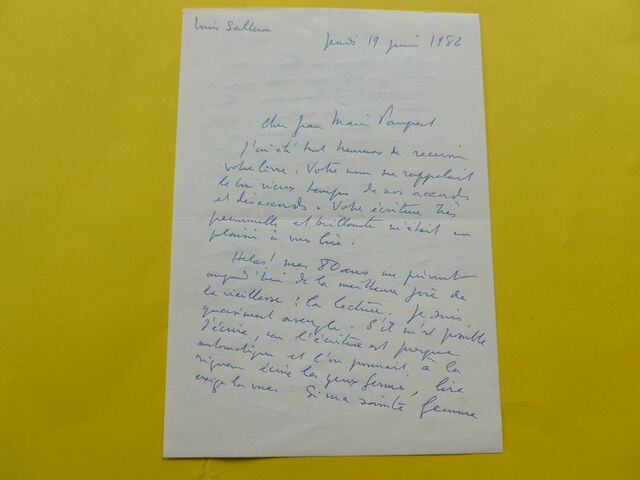 Louis Salleron
Jeudi 19 juin 1982
Cher Jean Marie Paupert
J'ai été tout heureux de recevoir
votre livre. Votre nom me rappelait
le bon vieux temps de nos accords
et désaccords. Votre écriture très
personnelle et brillante m'était un
plaisir à vous lire.
Hélas! mes 80 ans me privent
aujourd'hui de la meilleure joie de
la vieillesse : la lecture. Je suis
quasiment aveugle. S'il m'est possible
d'écrire, car l'écriture est presque
automatique et l'on pourrait, à la
rigueur écrire les yeux fermés, lire
exige la vue. Si ma sainte femme